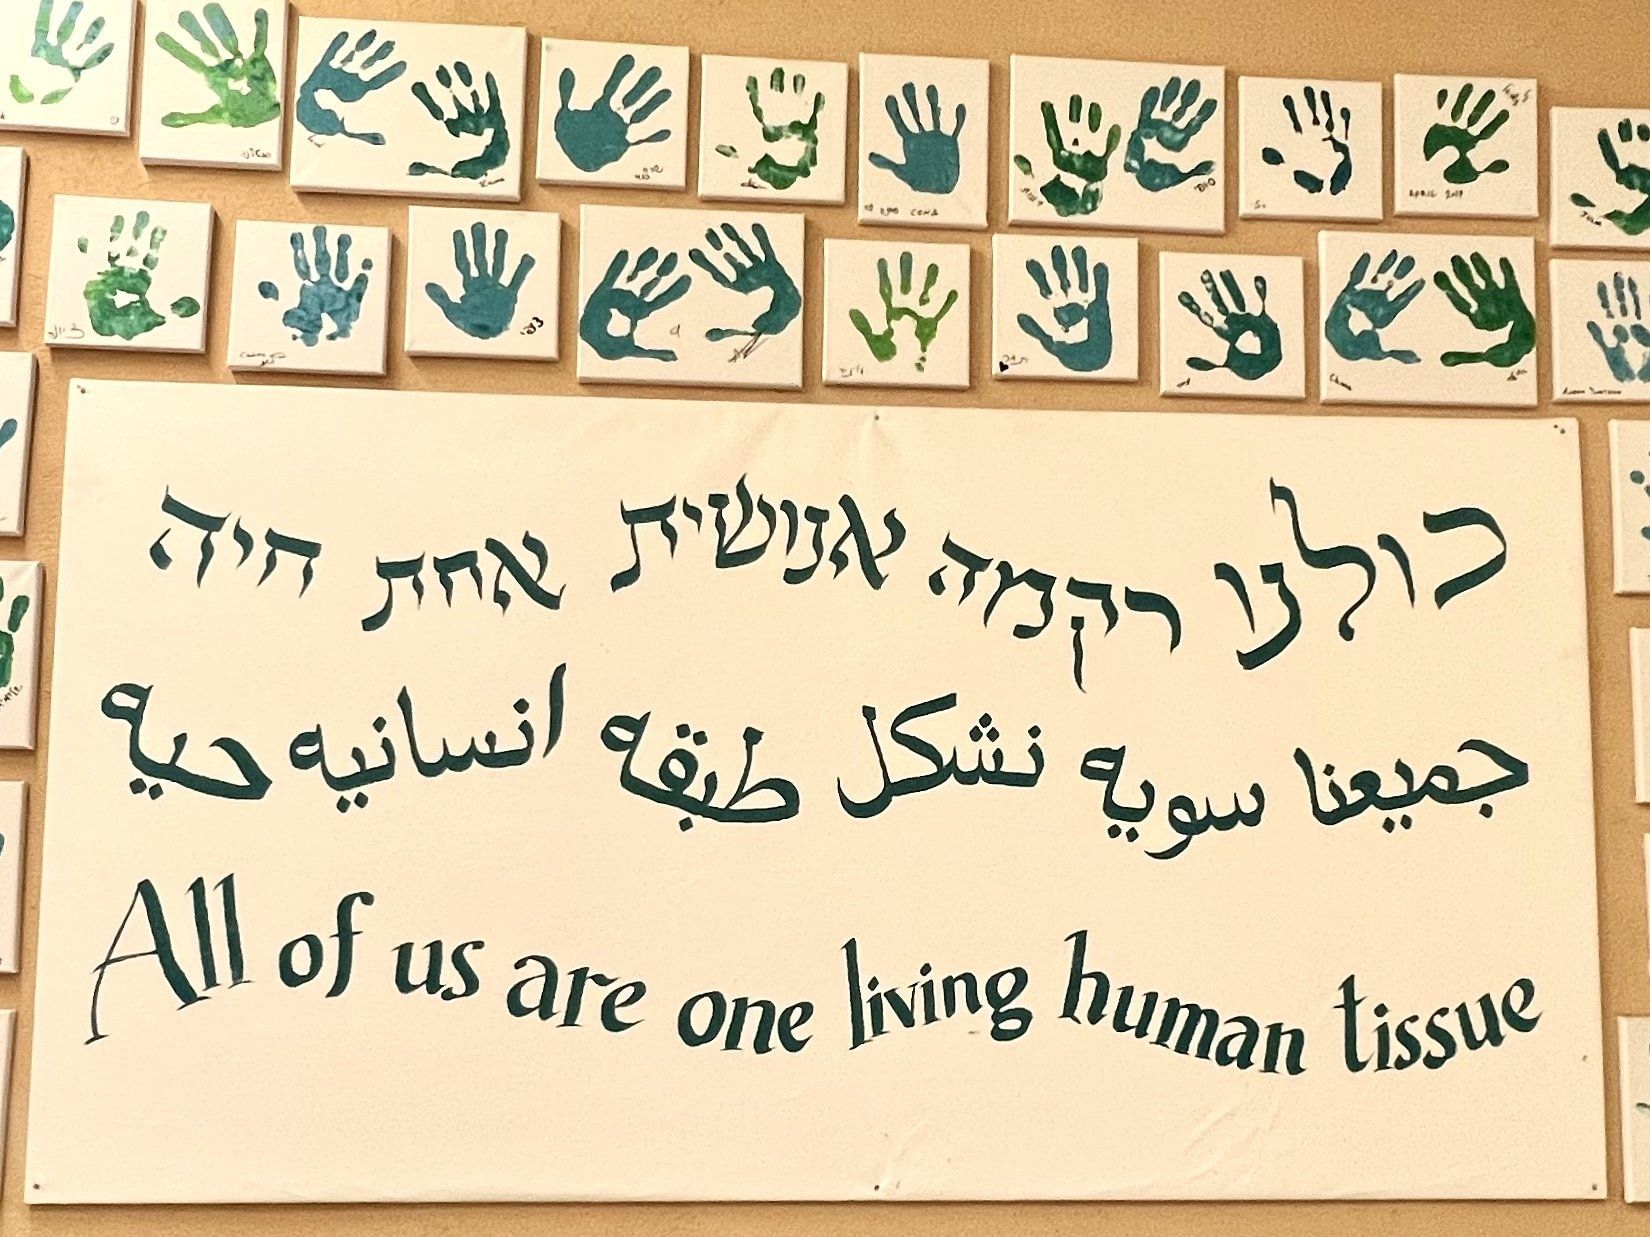 APRIL 2017
כולנו רקמה אנושית אחת חיה
جميعنا سويه نشكل طبقه انسانيه حيه
All of us are one living human tissue